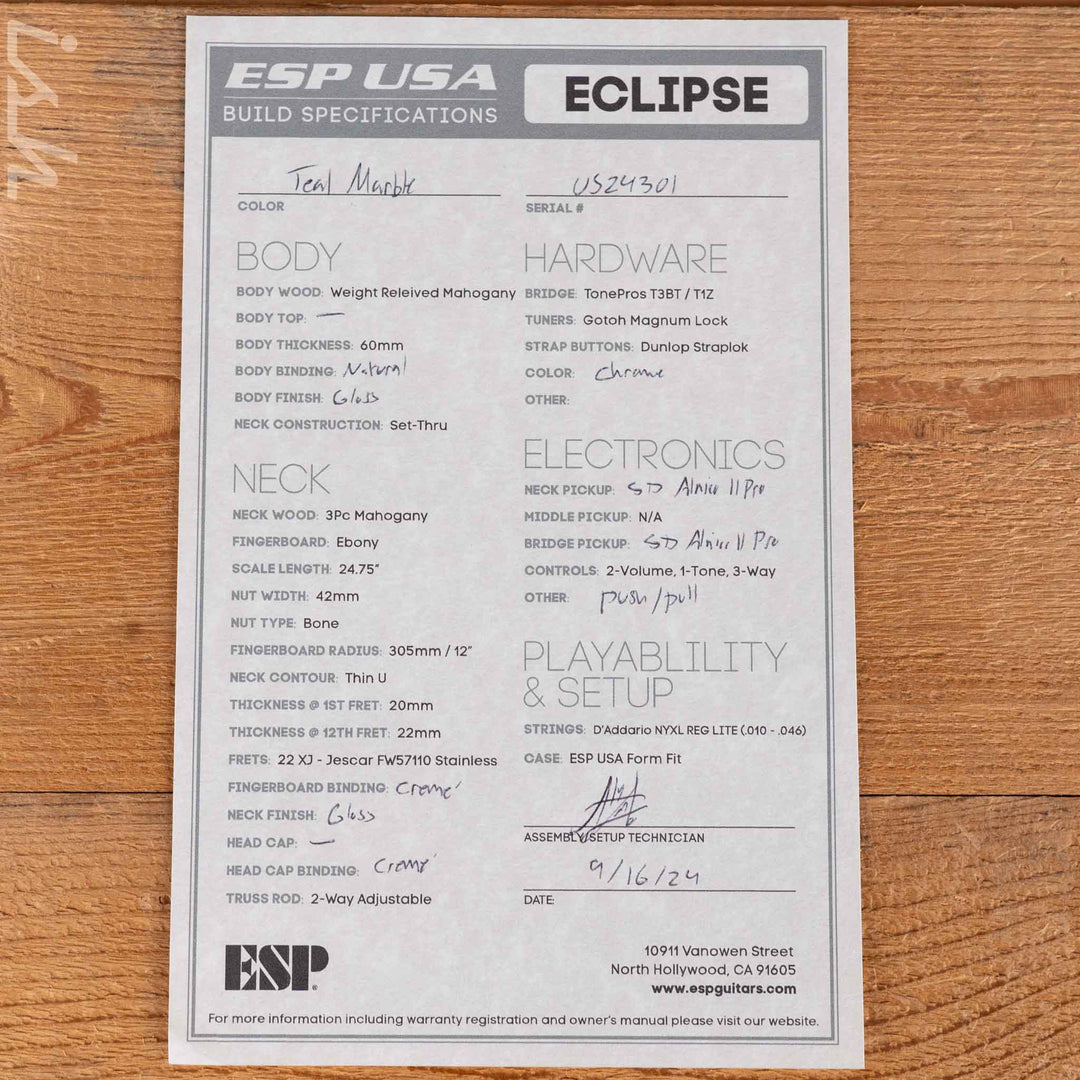 ish
ESP USA
BUILD SPECIFICATIONS
ECLIPSE
Teal Marble
COLOR
US24301
SERIAL #
BODY
BODY WOOD: Weight Releived Mahogany
BODY TOP: —
BODY THICKNESS: 60mm
BODY BINDING: Natural
BODY FINISH: Gloss
NECK CONSTRUCTION: Set-Thru
NECK
NECK WOOD: 3Pc Mahogany
FINGERBOARD: Ebony
SCALE LENGTH: 24.75"
NUT WIDTH: 42mm
NUT TYPE: Bone
FINGERBOARD RADIUS: 305mm / 12"
NECK CONTOUR: Thin U
THICKNESS @ 1ST FRET: 20mm
THICKNESS @ 12TH FRET: 22mm
FRETS: 22 XJ - Jescar FW57110 Stainless
FINGERBOARD BINDING: Cremé
NECK FINISH: Gloss
HEAD CAP: —
HEAD CAP BINDING: Cremé
TRUSS ROD: 2-Way Adjustable
HARDWARE
BRIDGE: TonePros T3BT / T1Z
TUNERS: Gotoh Magnum Lock
STRAP BUTTONS: Dunlop Straplok
COLOR: Chrome
OTHER:
ELECTRONICS
NECK PICKUP: SD Alnico II Pro
MIDDLE PICKUP: N/A
BRIDGE PICKUP: SD Alnico II Pro
CONTROLS: 2-Volume, 1-Tone, 3-Way
OTHER: push/pull
PLAYABLILITY
& SETUP
STRINGS: D'Addario NYXL REG LITE (.010 - .046)
CASE: ESP USA Form Fit
ASSEMBLY/SETUP TECHNICIAN
9/16/24
DATE:
ESP®
10911 Vanowen Street
North Hollywood, CA 91605
www.espguitars.com
For more information including warranty registration and owner's manual please visit our website.